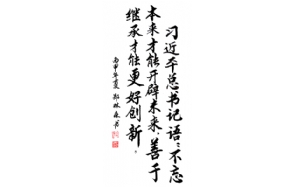 习近平总书记语：不忘
本来才能开辟未来，善于
继承才能更好创新。
丙申年夏 郑